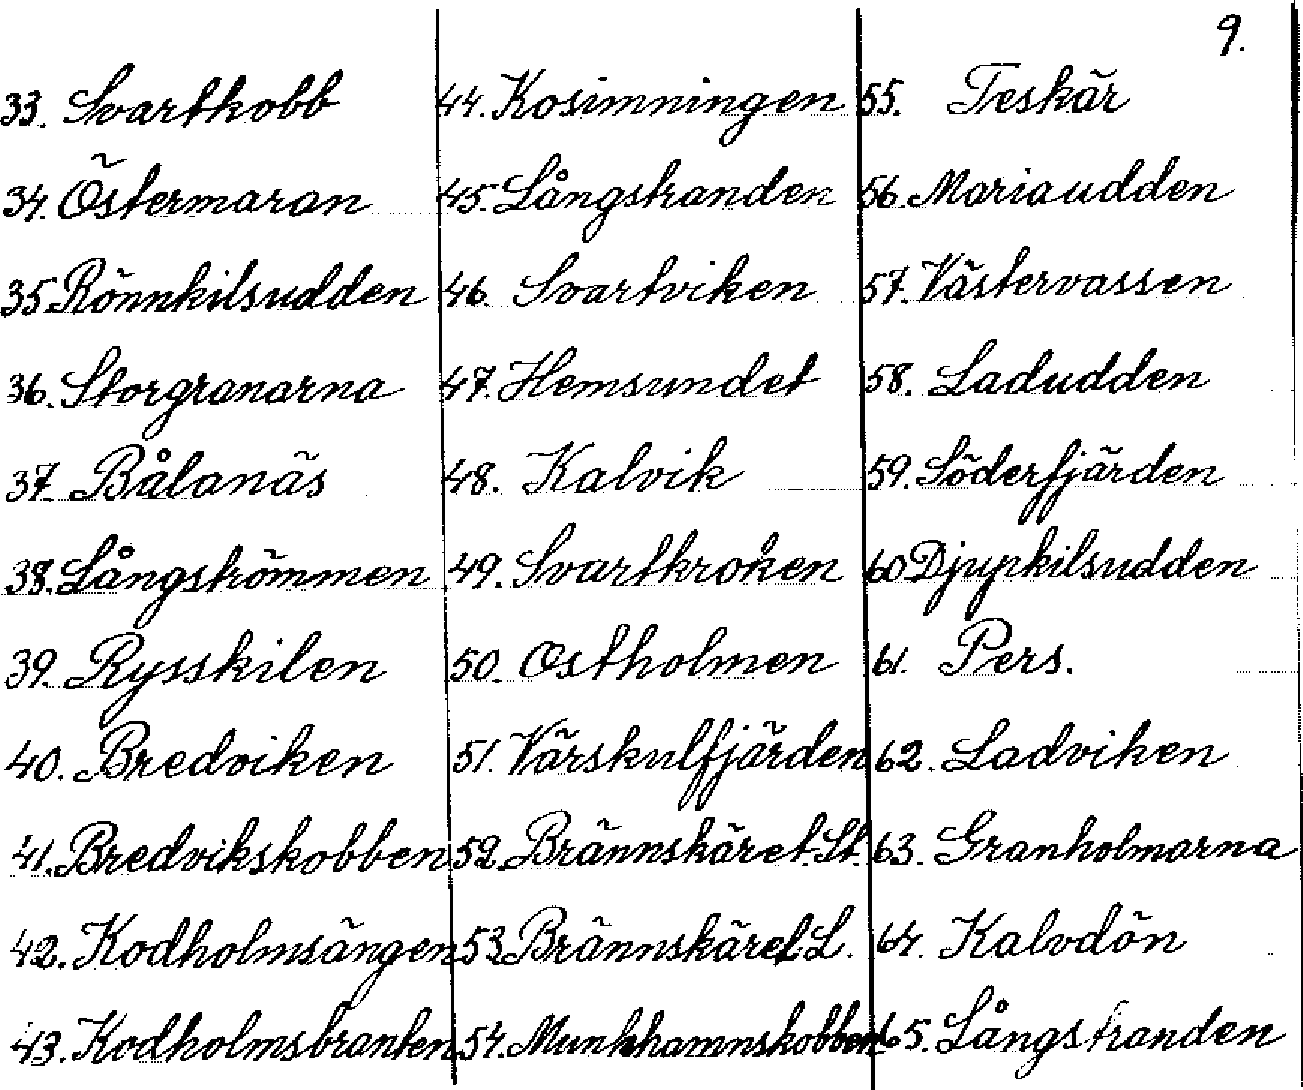 9.
33. Svartkobb
34. Östermaran
35. Rönnkilsudden
36. Storgranarna
37. Bålanäs
38. Långströmmen
39. Rysskilen
40. Bredviken
41. Bredvikskobben
42. Kodholmsängen
43. Kodholmsbranten
44. Kosimningen
45. Långstranden
46. Svartviken
47. Hemsundet
48. Kalvik
49. Svartkroken
50. Ostholmen
51. Vårskulfjärden
52. Brännskäret. St.
53. Brännskäret L.
54. Munkhamnskobben
55. Teskär
56. Mariaudden
57. Västervassen
58. Ladudden
59. Söderfjärden
60 Djupkilsudden
61. Pers.
62. Ladviken
63. Granholmarna
64. Kalvdön
65. Långstranden